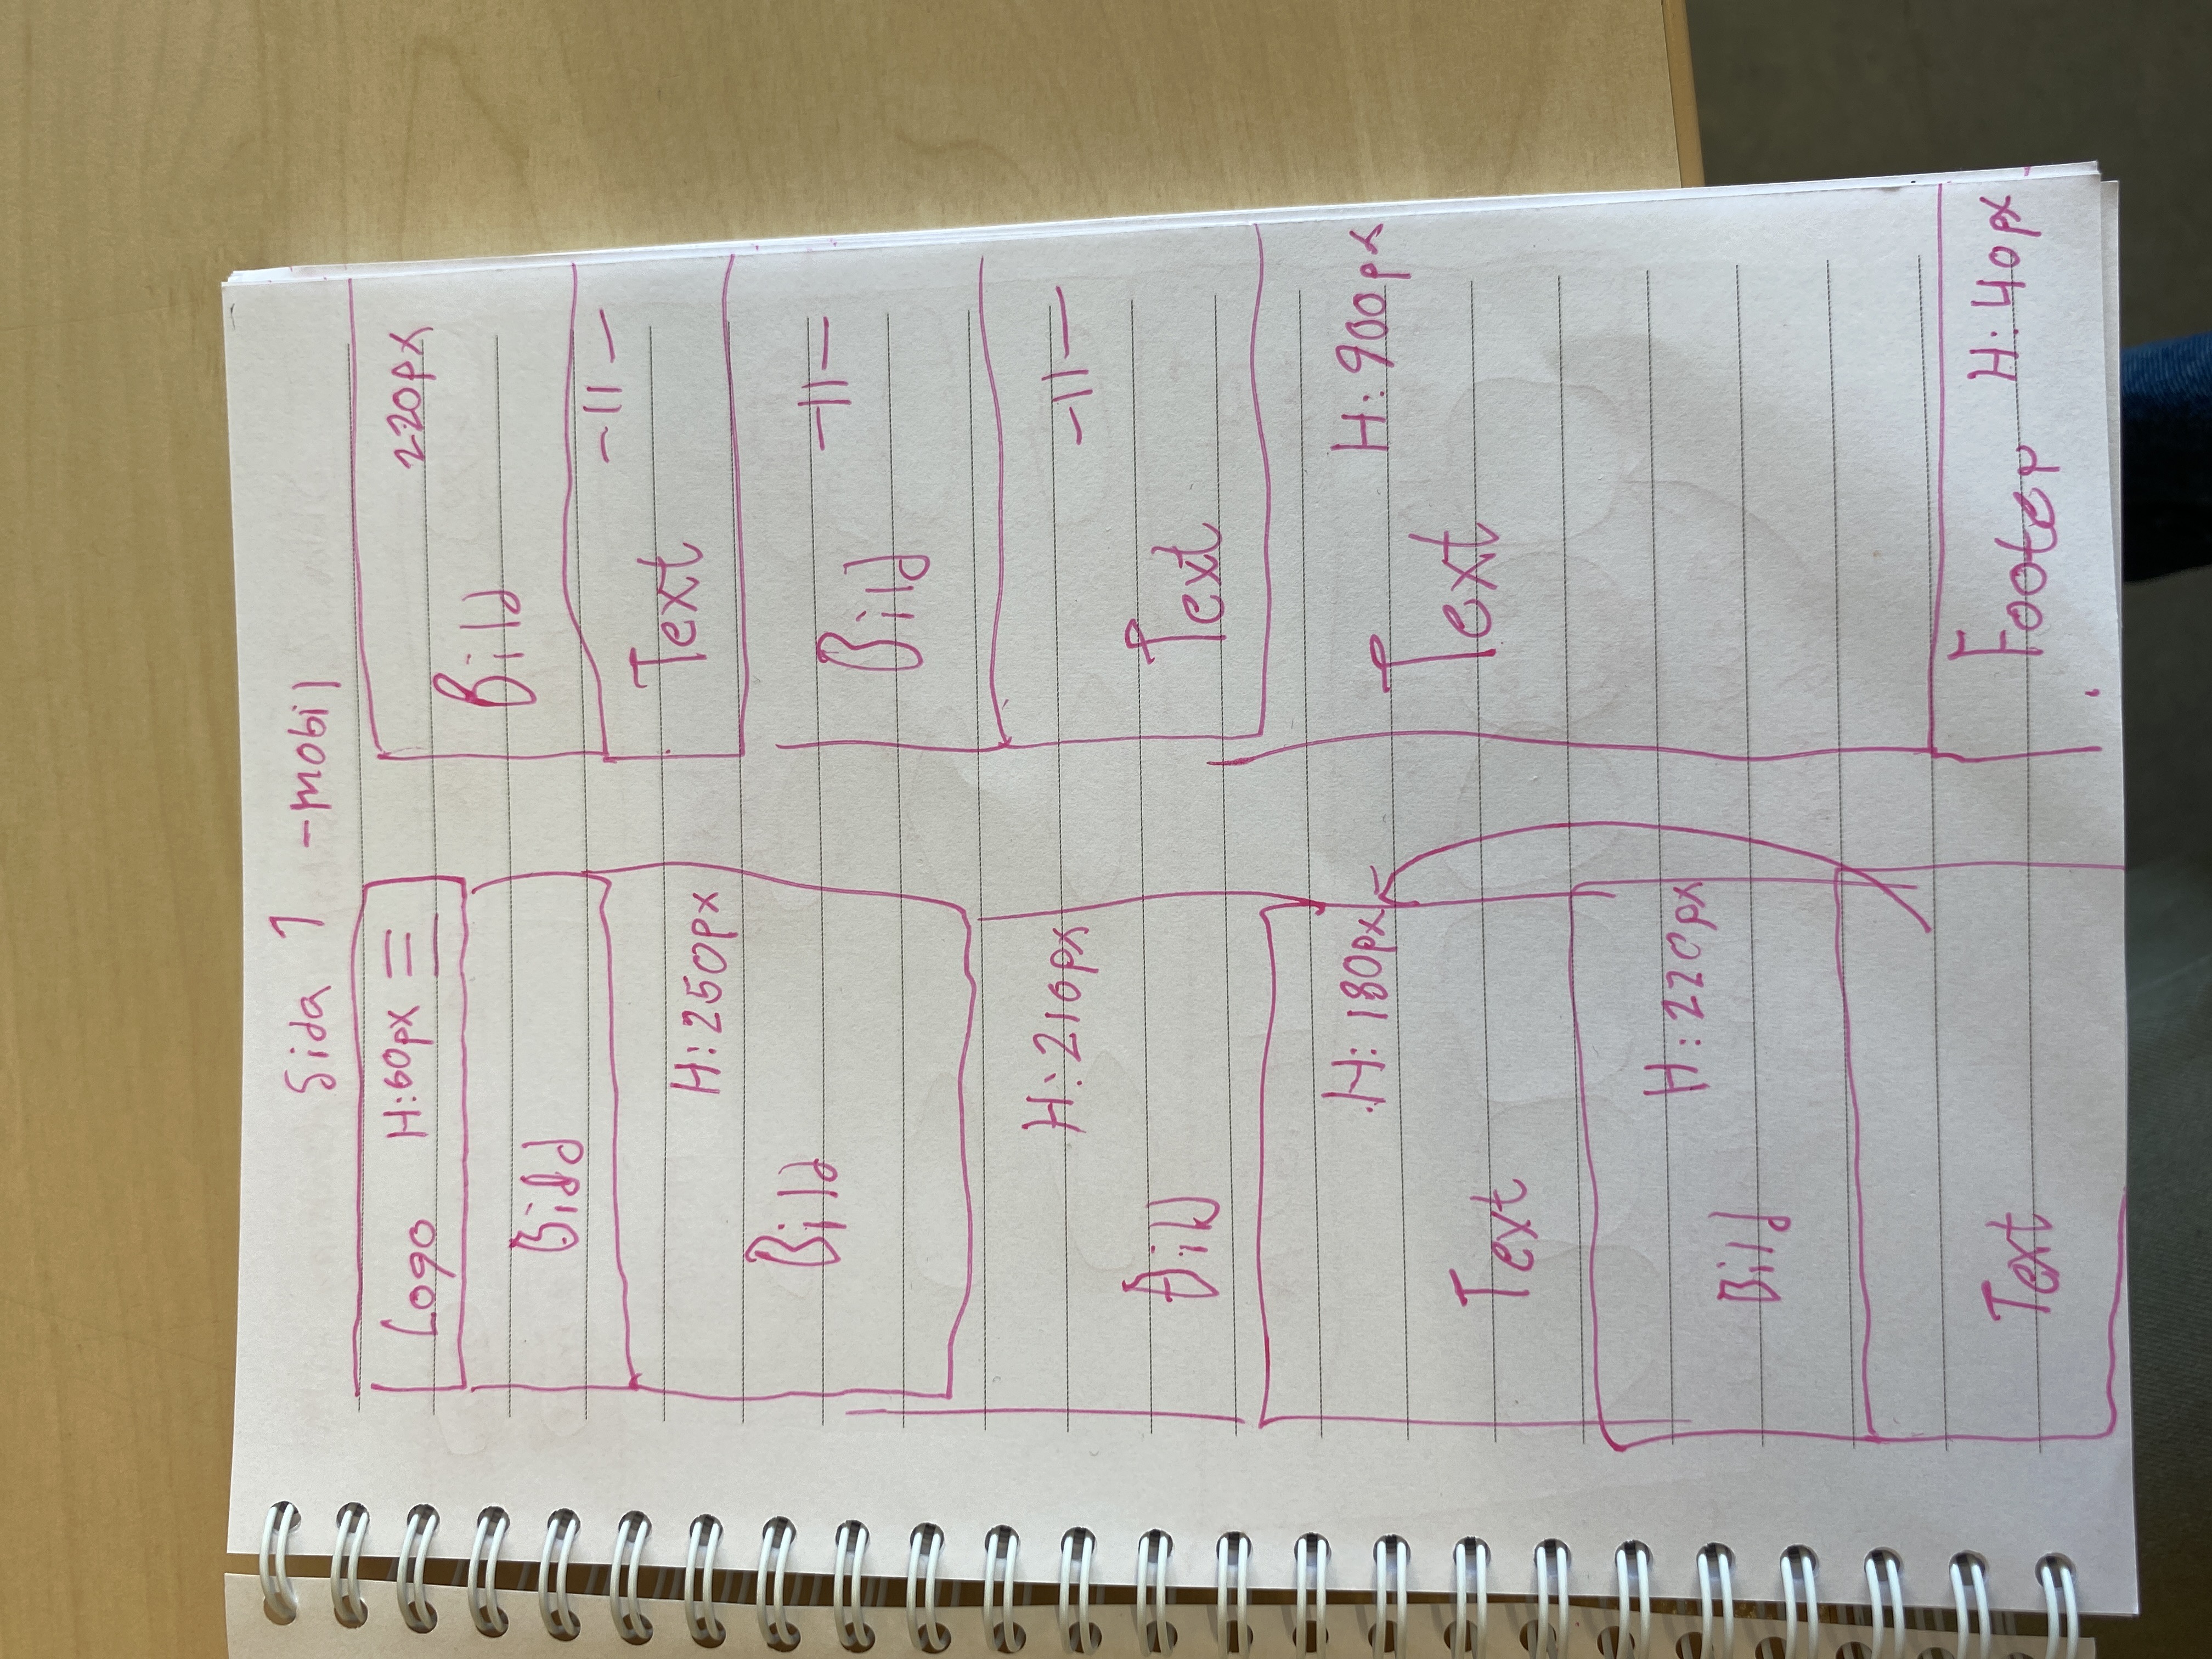 Sida 1 -mobil
Logo H:60px
Bild
H:250px
Bild
H:210px
Bild
H: 180px
Text
H:220px
Bild
Text
220px
Bild
-11-
Text
-11-
Bild
-11-
Text
H: 900px
Text
Footer H: 40px